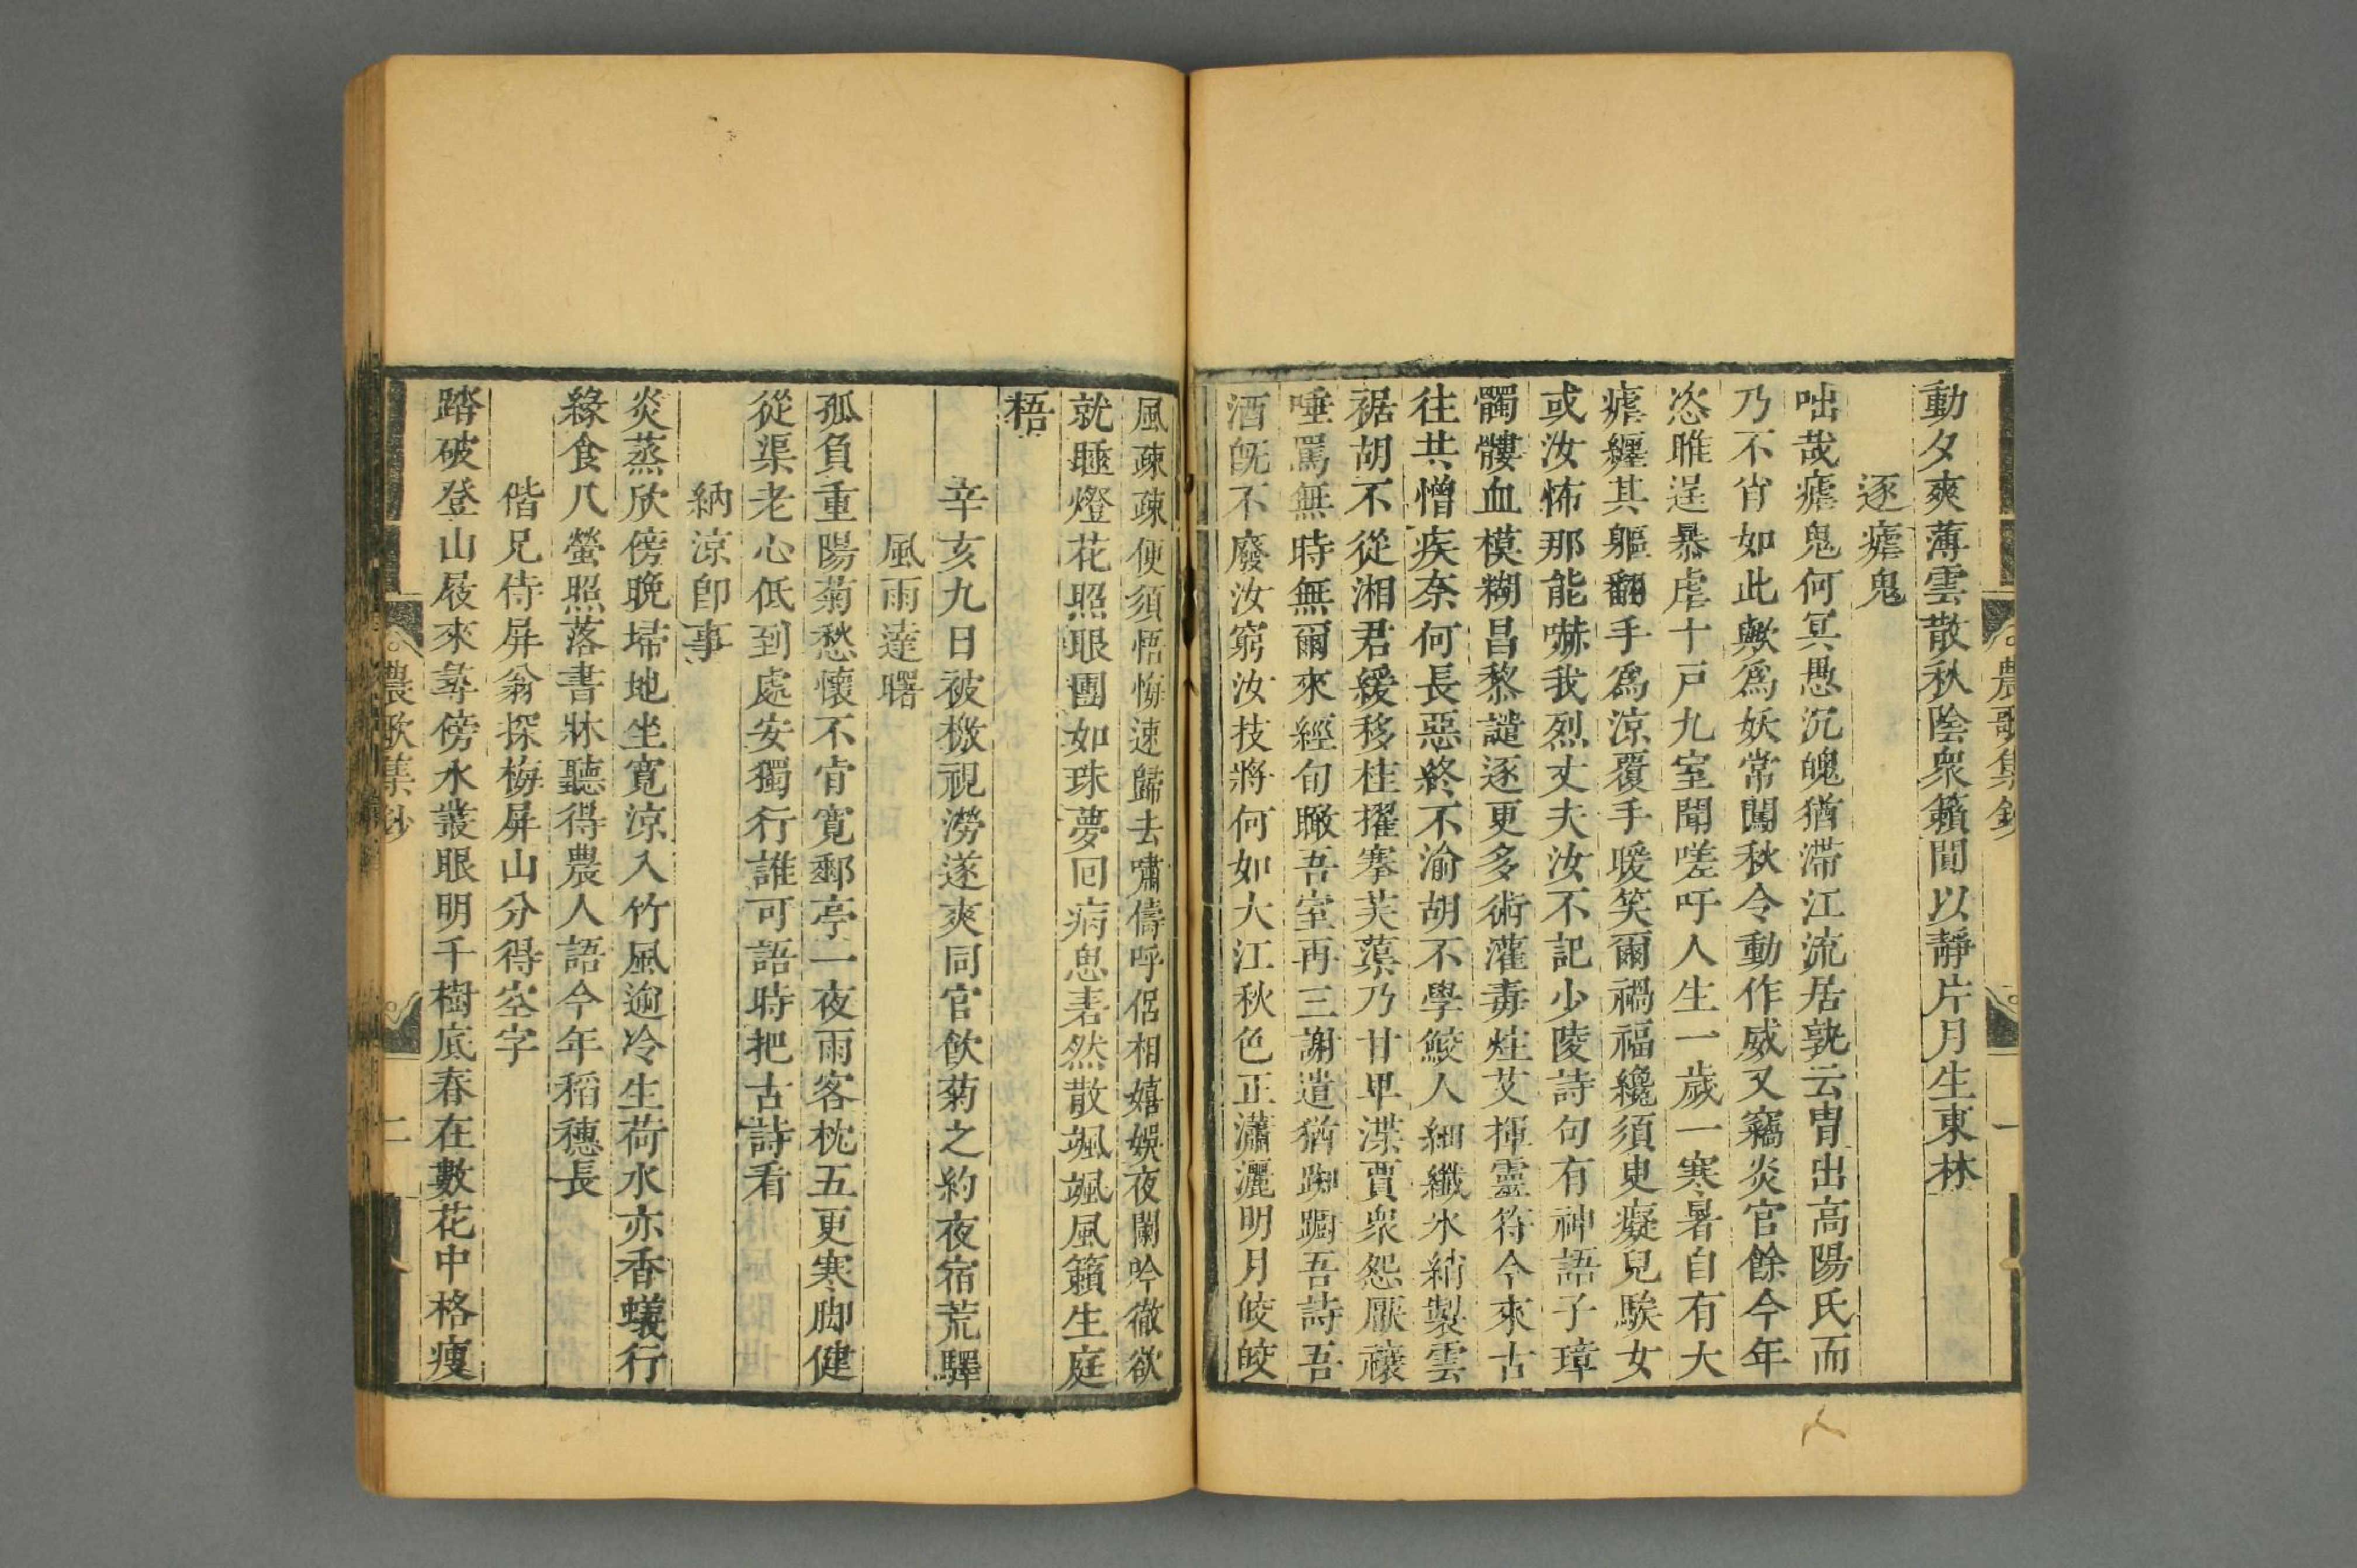 農歌集鈔
一
動夕爽薄雲散秋陰衆籟間以靜片月生東林
逐瘧鬼
咄哉瘧鬼何冥愚沉魄猶滯江流居孰云胄出高陽氏而
乃不肖如此歟爲妖常闖秋令動作威又竊炎官餘今年
恣睢逞暴虐十戸九室聞嗟吁人生一歲一寒暑自有大
瘧纒其軀翻手爲涼覆手暖笑爾禍福纔須臾癡兒騃女
或汝怖那能嚇我烈丈夫汝不記少陵詩句有神語子璋
髑髏血模糊昌黎譴逐更多術灌毒炷艾揮靈符今來古
往共憎疾奈何長惡終不渝胡不學鮫人細纖氷綃製雲
裾胡不從湘君緩移桂擢搴芙蕖乃甘卑渫賈衆怨厭禳
唾罵無時無爾來經旬瞰吾室再三謝遣猶踟躕吾詩吾
酒旣不廢汝窮汝技將何如大江秋色正瀟灑明月皎皎
風疎疎便須悟悔速歸去嘯儔呼侶相嬉娛夜闌吟徹欲
就睡燈花照眼團如珠夢回病思砉然散颯颯風籟生庭
梧
辛亥九日被檄視澇遂爽同官飲菊之約夜宿荒驛
風雨達曙
孤負重陽菊愁懷不肯寬郵亭一夜雨客枕五更寒脚健
從渠老心低到處安獨行誰可語時把古詩看
納涼卽事
炎蒸欣傍晚埽地坐寬涼入竹風逾冷生荷水亦香蟻行
緣食人螢照落書牀聽得農人語今年稻穗長
偕兄侍屏翁探梅屏山分得空字
踏破登山屐來尋傍水叢眼明千樹底春在數花中格瘦
農歌集鈔
二